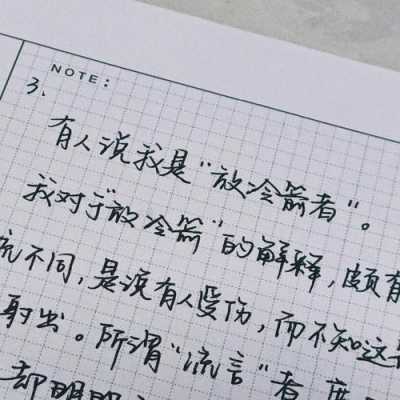 NOTE:
3.
有人说我是“放冷箭者”。
我对于“放冷箭”的解释,颇有
流不同,是没有人受伤,而不知这
射出。所谓“流言”者
却明明